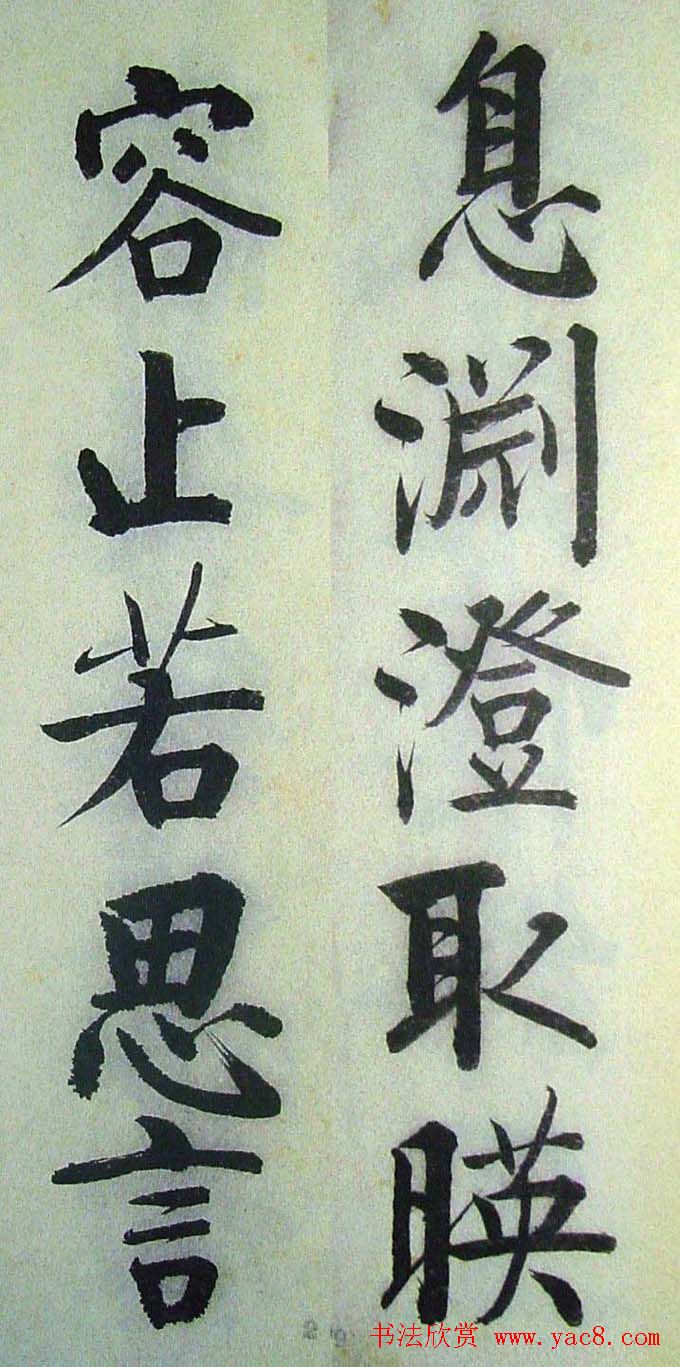 息淵澄取暎
容止若思言
书法欣赏 www.yac8.com